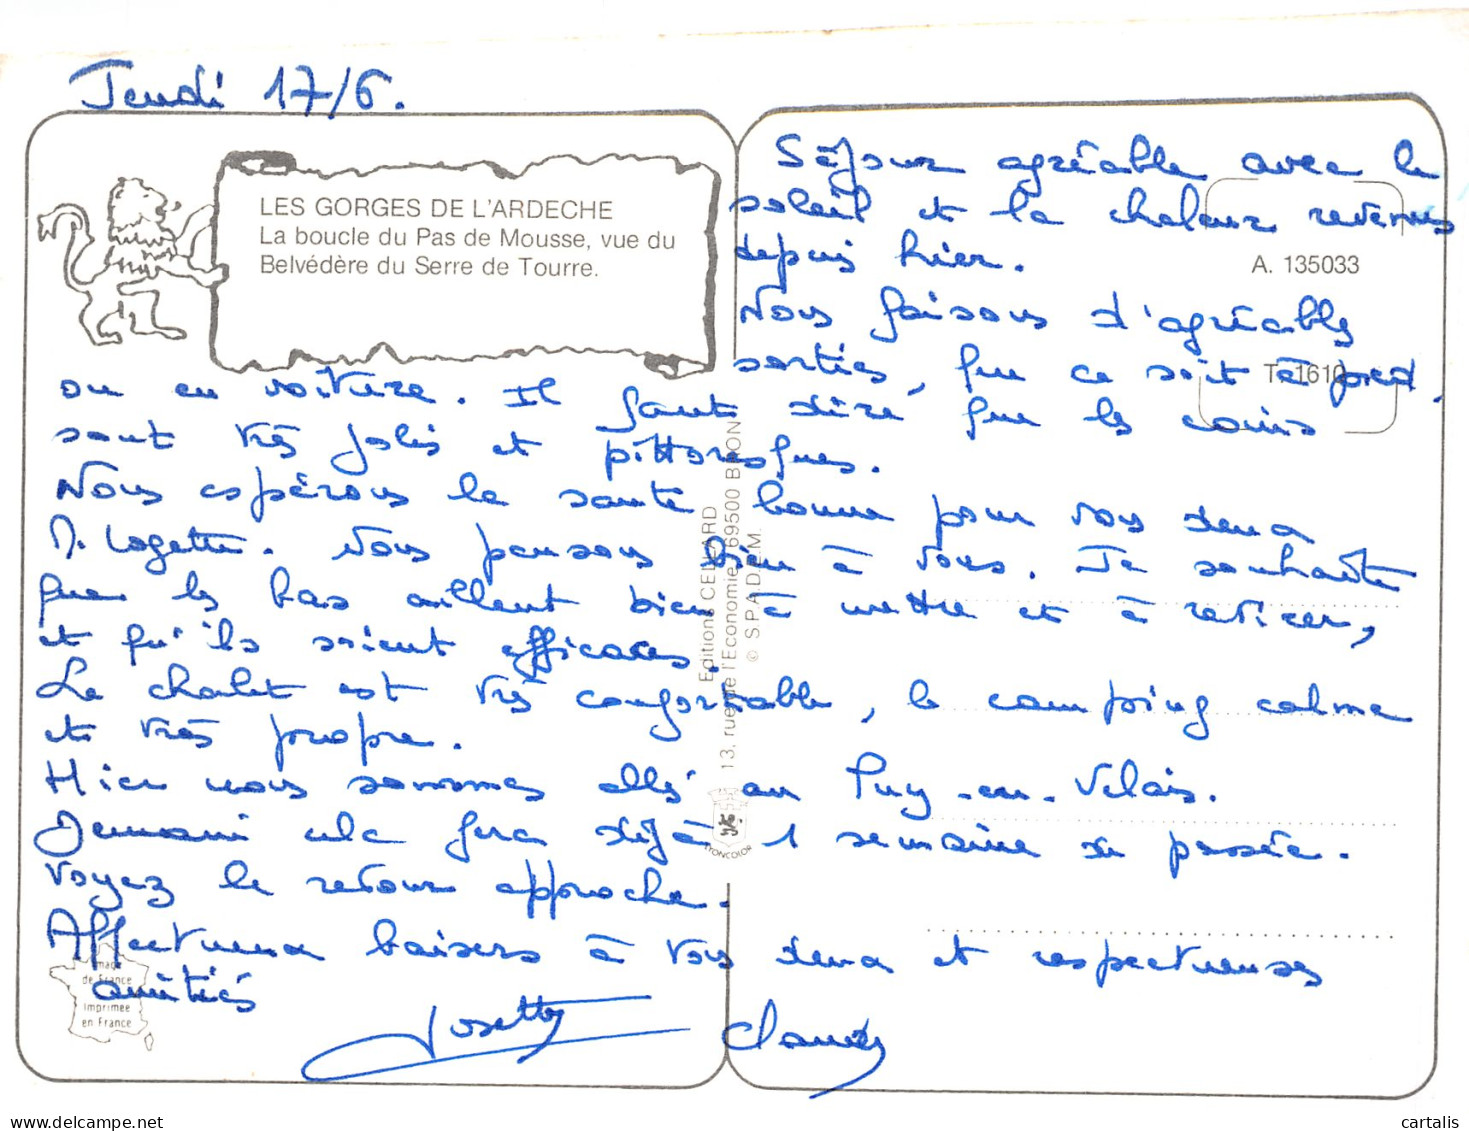 Jeudi 17/6.
LES GORGES DE L'ARDECHE
La boucle du Pas de Mousse, vue du
Belvédère du Serre de Tourre.
Séjour agréable avec le
soleil et la chaleur revenus
depuis hier.
A. 135033
Nous faisons d'agréables
sorties, que ce soit à pied,
T. 1610
ou en voiture. Il faut dire que les coins
sont très jolis et pittoresques.
Nous espérons la santé bonne pour vous deux
Logette. Nous pensons bien à vous. Je souhaite
que les bas aillent bien à mettre et à retirer,
et qu'ils soient efficaces.
Le chalet est très confortable, le camping calme
et très propre.
Hier nous sommes allés au Puy-en-Velais.
Demain cela fera déjà 1 semaine de passée.
Voyez le retour approche.
Affectueux baisers à vous deux et respectueuses
amitiés
Josette Claude
Editions CELLARD
13, rue de l'Economie, 69500 BRON
© S.P.A.D.E.M.
LYONCOLOR
Image
de France
imprimée
en France
cartalis